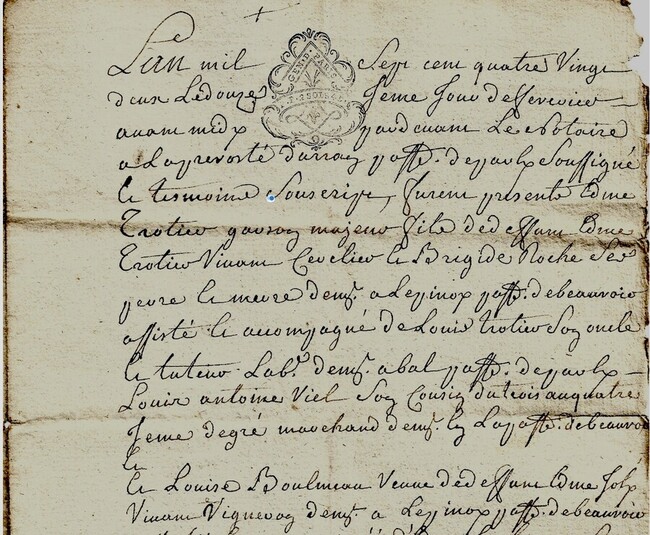 Lan mil Sept cent quatre Vingt
deux Ledouze Jeme Jour defevrier
avant midy pardevant Le Notaire
a Laprevosté parr. Soussigné
et tesmoins Souscript, furent presents Edme
Trotier garson majeur fils dedeffunt Edme
Trotier Vivant Cerclier et Brigide Roche Ses
pere et mere dem.t a Lepinoy parr. debeauvoir
assisté et accompagné de Louis Trotier Son oncle
et tuteur Lab.r dem.t abal parr.
Louis antoine Viel Son Cousin dutrois auquatre
Jeme degré marchand dem.t en Lapar. debeauvoir
et
et Louise Boulmeau Veuve dedeffunt Edme
Vivant Vigneron dem.t a Lepinoy parr. debeauvoir